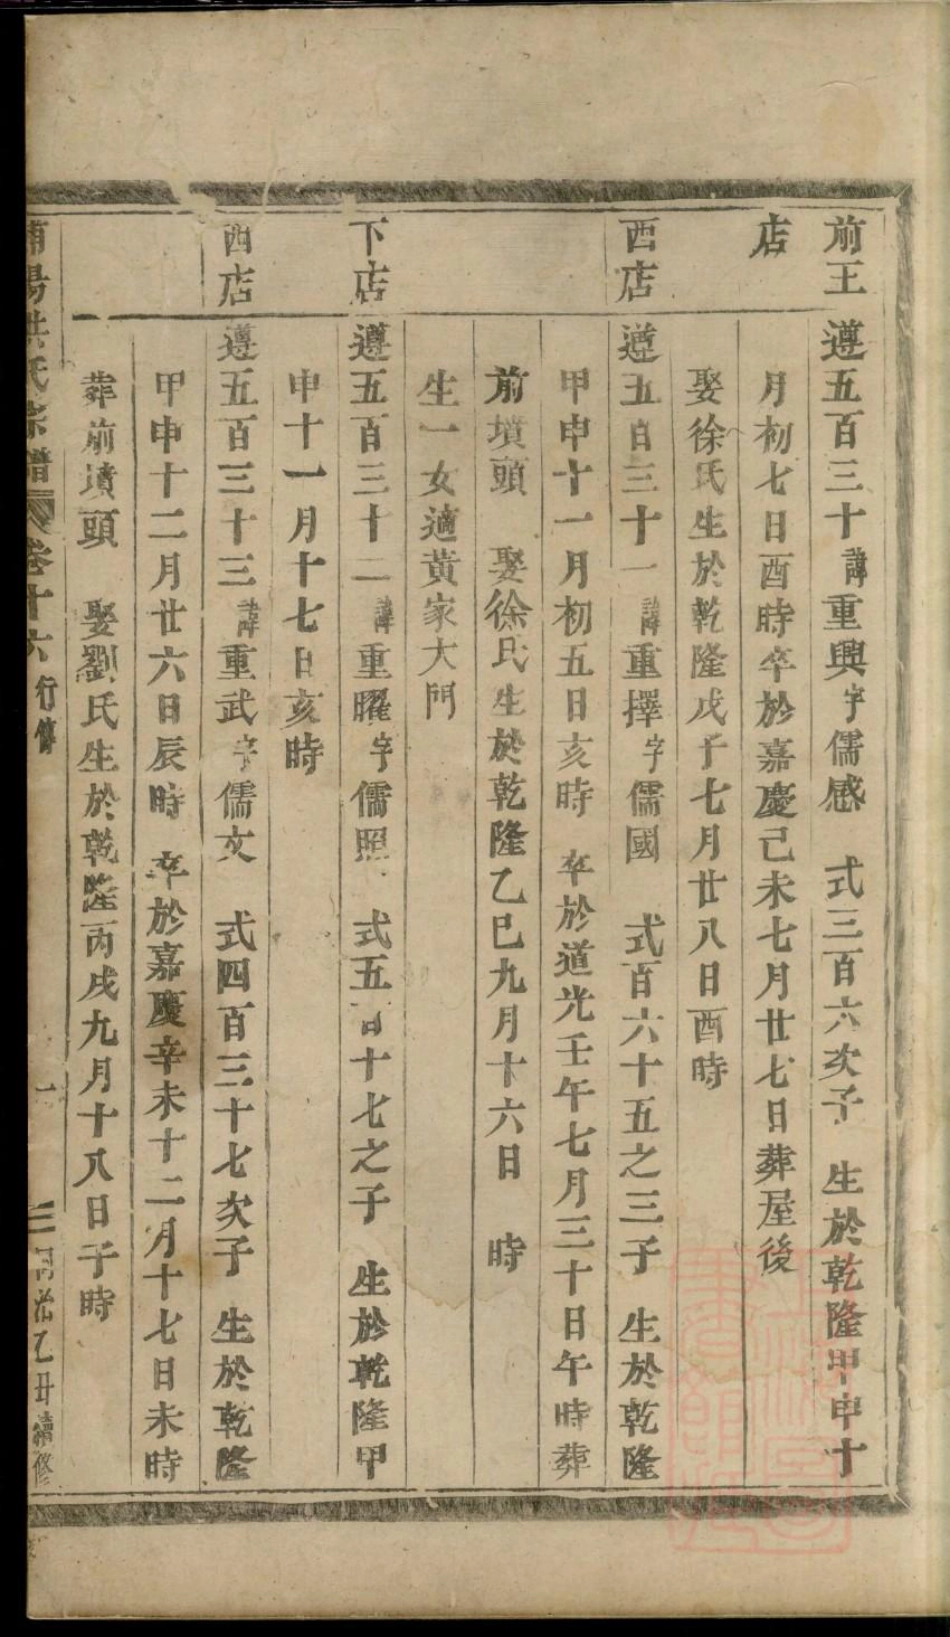 前王店
遵五百三十諱重興字儒感　式三百六次子　生於乾隆甲申十
月初七日酉時卒於嘉慶己未七月廿七日葬屋後
娶徐氏生於乾隆戊子七月廿八日酉時
西店
遵五百三十一諱重擇字儒國　式百六十五之三子　生於乾隆
甲申十一月初五日亥時　卒於道光壬午七月三十日午時葬
前墳頭　娶徐氏生於乾隆乙巳九月十六日　時
生一女適黃家大門
下店
遵五百三十二諱重曜字儒照　式五百十七之子　生於乾隆甲
申十一月十七日亥時
西店
遵五百三十三諱重武字儒文　式四百三十七次子　生於乾隆
甲申十二月廿六日辰時　卒於嘉慶辛未十二月十七日未時
葬前墳頭　娶劉氏生於乾隆丙戌九月十八日子時
南陽洪氏宗譜　卷十六行傳　三　同治乙丑續修